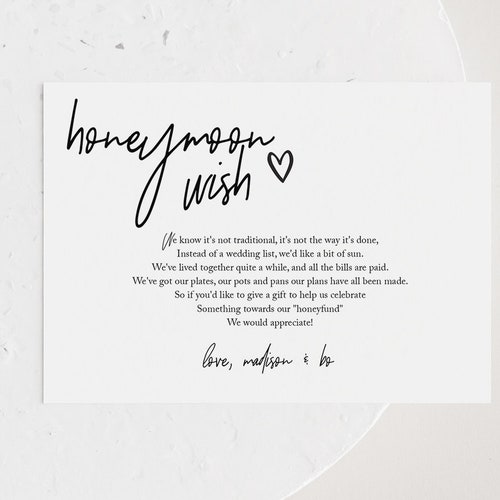 honeymoon
wish
We know it's not traditional, it's not the way it's done,
Instead of a wedding list, we'd like a bit of sun.
We've lived together quite a while, and all the bills are paid.
We've got our plates, our pots and pans our plans have all been made.
So if you'd like to give a gift to help us celebrate
Something towards our "honeyfund"
We would appreciate!
love, madison & bo